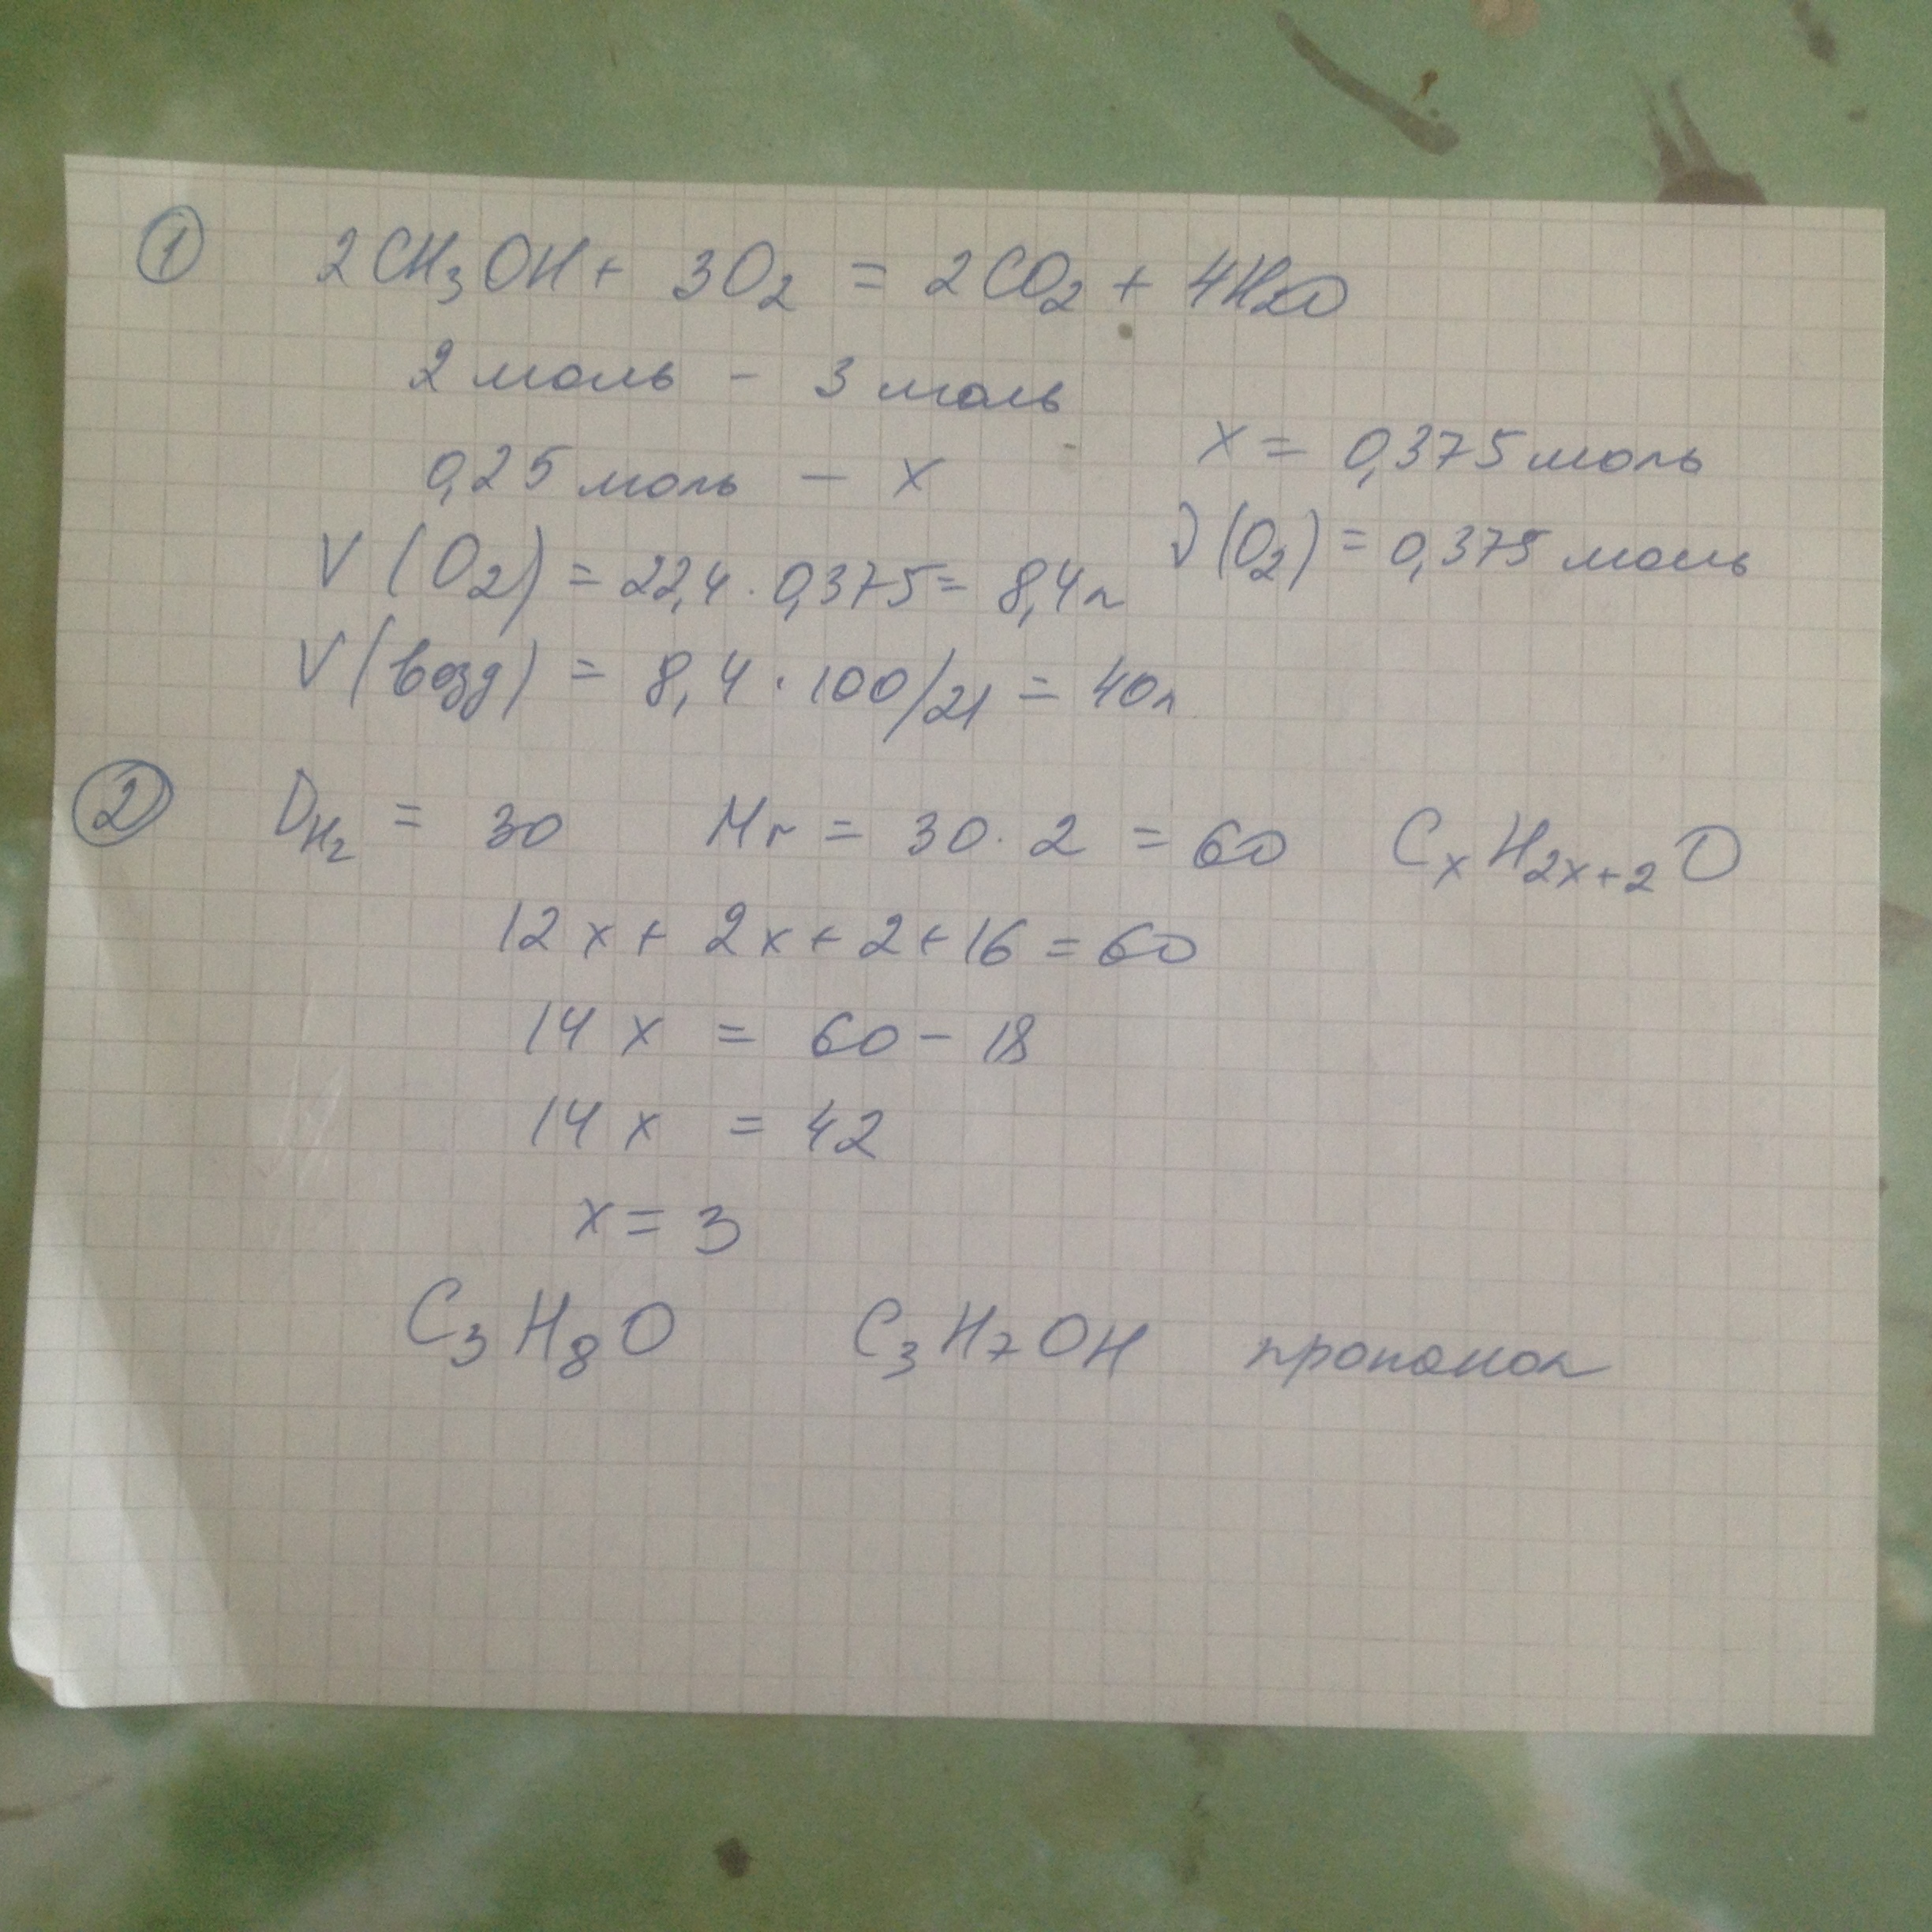 ① 2CH₃OH + 3O₂ = 2CO₂ + 4H₂O
2 моль - 3 моль
0,25 моль - x x = 0,375 моль
V(O₂) = 22,4 · 0,375 = 8,4 л ν(O₂) = 0,375 моль
V(возд) = 8,4 · 100/21 = 40л
② D_H₂ = 30 Mr = 30 · 2 = 60 CₓH₂ₓ₊₂O
12x + 2x + 2 + 16 = 60
14x = 60 - 18
14x = 42
x = 3
C₃H₈O C₃H₇OH пропанол